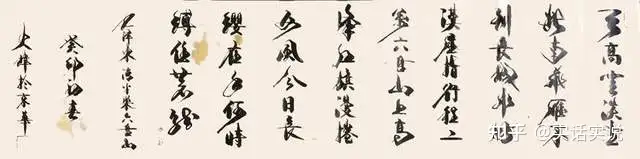 天高雲淡望
断南飛雁不
到長城非好
漢屈指行程二
萬六盤山上高
峰紅旗漫捲
西風今日長
纓在手何時
縛住蒼龍
毛澤東清平樂六盘山
癸卯初春
於京華
知乎 @实话实说